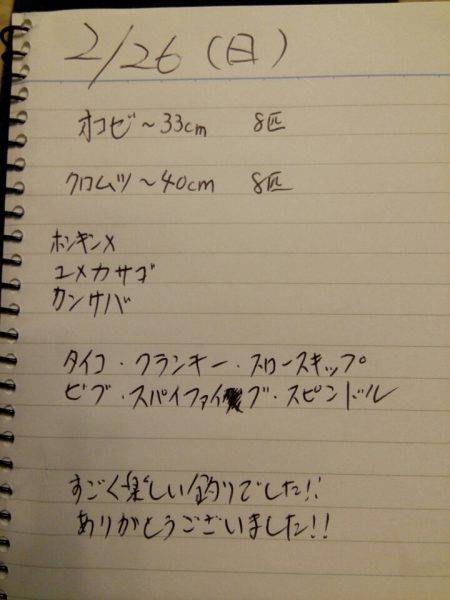 2/26(日)
オコビ~33cm 8匹
クロムツ~40cm 8匹
ホンギンメ
ユメカサゴ
カンサバ
タイコ・クランキー・スロースキップ
ビブ・スパイファイブ・スピンドル
すごく楽しい釣りでした!!
ありがとうございました!!